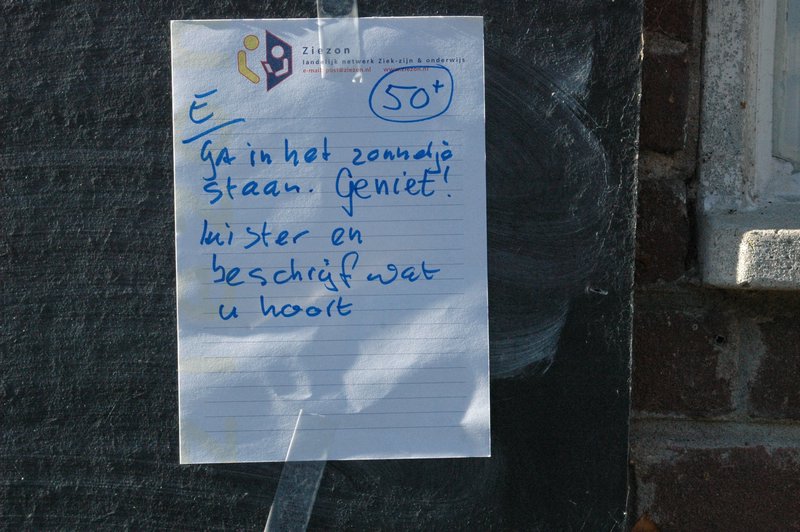 Ziezon
landelijk netwerk Ziek-zijn & onderwijs
e-mail: post@ziezon.nl www.ziezon.nl
50+
E
GA in het zonnetje
staan. Geniet!
luister en
beschrijf wat
u hoort